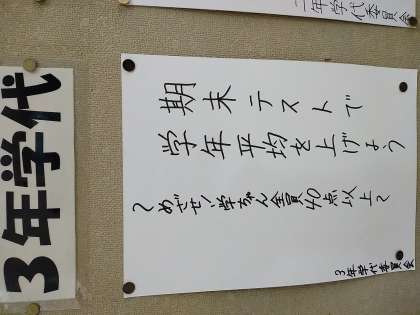 二年学代委員会
期末テストで
学年平均を上げよう
～めざせ！学ちゃん全員40点以上～
3年学代委員会
3年学代